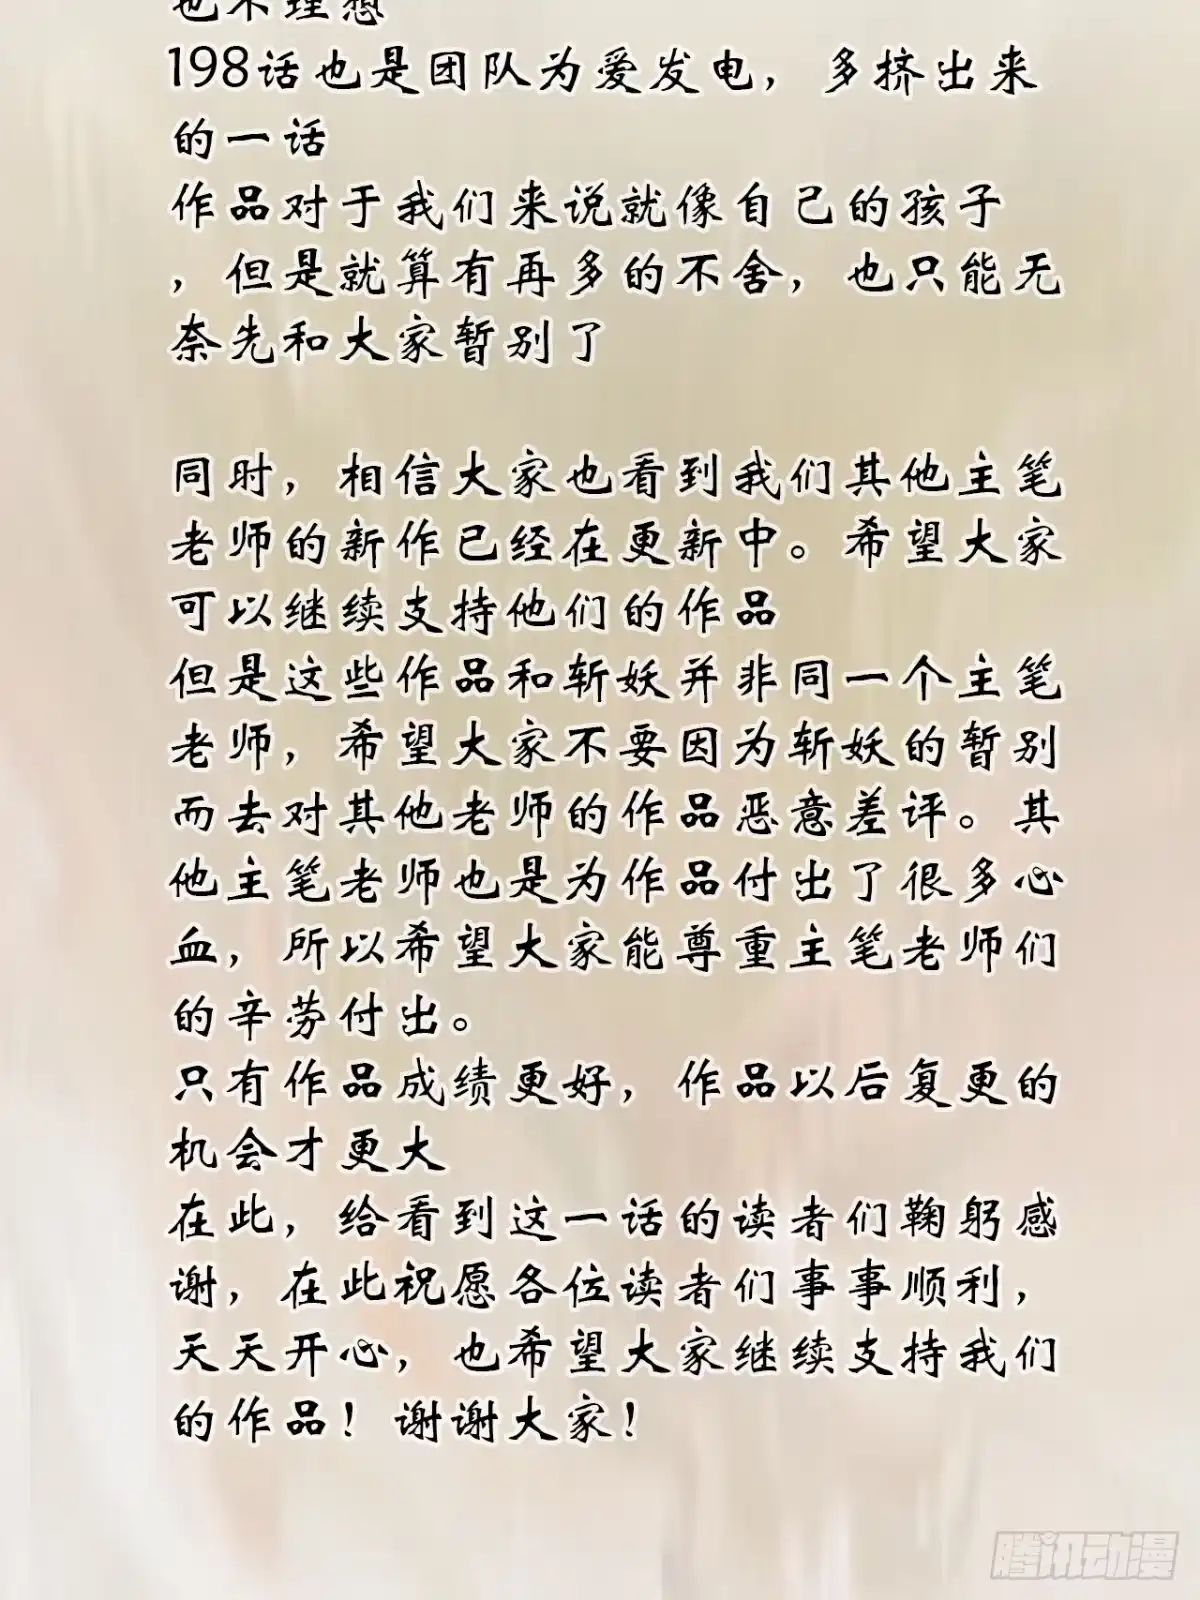 也不理想
198话也是团队为爱发电，多挤出来
的一话
作品对于我们来说就像自己的孩子
，但是就算有再多的不舍，也只能无
奈先和大家暂别了
同时，相信大家也看到我们其他主笔
老师的新作已经在更新中。希望大家
可以继续支持他们的作品
但是这些作品和斩妖并非同一个主笔
老师，希望大家不要因为斩妖的暂别
而去对其他老师的作品恶意差评。其
他主笔老师也是为作品付出了很多心
血，所以希望大家能尊重主笔老师们
的辛劳付出。
只有作品成绩更好，作品以后复更的
机会才更大
在此，给看到这一话的读者们鞠躬感
谢，在此祝愿各位读者们事事顺利，
天天开心，也希望大家继续支持我们
的作品！谢谢大家！
腾讯动漫